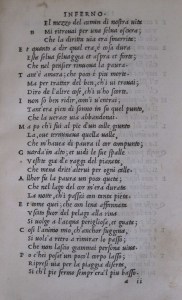 INFERNO.
EL mezzo del camin di nostra vita
Mi ritrovai per una selva oscura;
Che la diritta via era smarrita:
E t quanto a dir qual era, è cosa dura
Esta selva selvaggia et aspra et forte,
Che nel pensier rinuova la paura.
T ant'è amara; che poco è piu morte.
Ma per trattar del ben, ch'i vi trovai;
Diro de l'altre cose, ch'i v'ho scorte.
I non so ben ridir, com'i v'entrai;
Tant'era pien di sonno in su quel punto,
Che la verace via abbandonai.
M a po ch'i fui al pie d'un colle giunto
La, ove terminava quella valle,
Che m'havea di paura il cor compunto;
G uardai in alto; et vidi le sue spalle
Vestite gia de raggi del pianeta,
Che mena dritt'altrui per ogni calle.
A lhor fu la paura un poco queta;
Che nel lago del cor m'era durata
La notte, ch'i passai con tanta pieta.
E t come quei, che con lena affannata
Uscito fuor del pelago alla riva
Si volge a l'acqua perigliosa, et guata;
C osi l'animo mio, ch'anchor fuggiva,
Si vols'a retro a rimirar lo passo;
Che non lascio giamai persona viva.
P o c'hei posato un poco il corpo lasso;
Ripresi via per la piaggia diserta,
Si che'l pie fermo sempr'era'l piu basso.
a ii